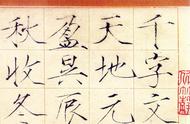 千字文
天地元
盈昃辰
秋收冬